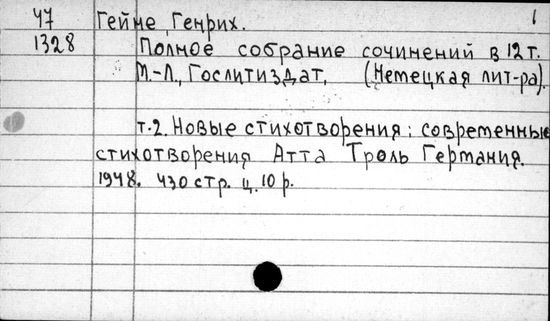 47 Гейне, Генрих. 1
1328 Полное собрание сочинений в 12 т.
М.-Л., Гослитиздат, (Немецкая лит-ра).
т.2. Новые стихотворения; современные
стихотворения Атта Троль Германия.
1948. 430 стр. ц. 10 р.